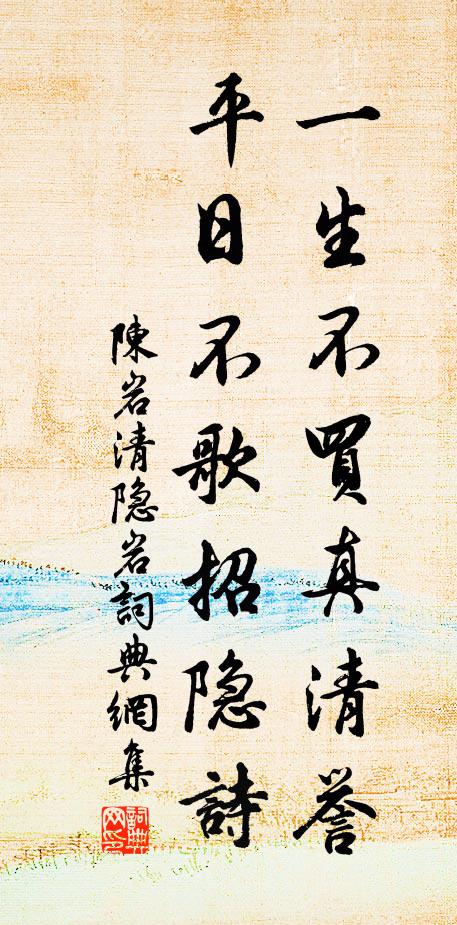 一生不買真清誉
平日不歌招隐詩
陳岩清隐岩詞典網集
詞典网印